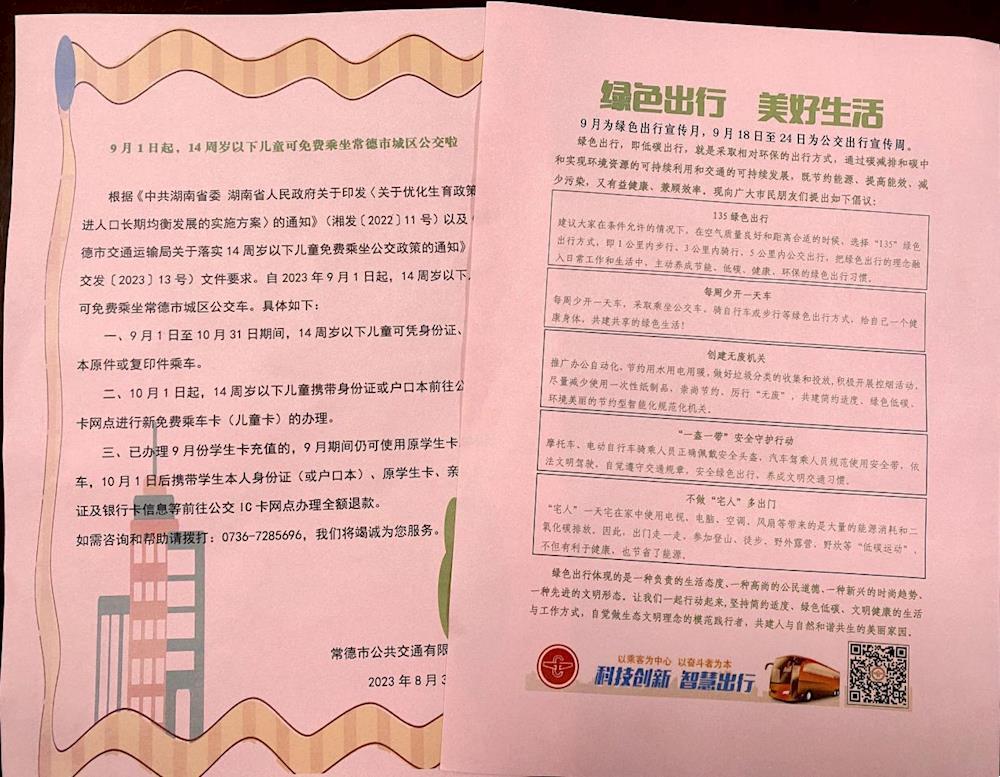 9月1日起，14周岁以下儿童可免费乘坐常德市城区公交啦
根据《中共湖南省委 湖南省人民政府关于印发〈关于优化生育政策
进人口长期均衡发展的实施方案〉的通知》（湘发〔2022〕11号）以及
德市交通运输局关于落实14周岁以下儿童免费乘坐公交政策的通知》
交发〔2023〕13号）文件要求。自2023年9月1日起，14周岁以下
可免费乘坐常德市城区公交车。具体如下：
一、9月1日至10月31日期间，14周岁以下儿童可凭身份证、
本原件或复印件乘车。
二、10月1日起，14周岁以下儿童携带身份证或户口本前往公
卡网点进行新免费乘车卡（儿童卡）的办理。
三、已办理9月份学生卡充值的，9月期间仍可使用原学生卡
车，10月1日后携带学生本人身份证（或户口本）、原学生卡、亲
证及银行卡信息等前往公交IC卡网点办理全额退款。
如需咨询和帮助请拨打：0736-7285696，我们将竭诚为您服务。
常德市公共交通有限
2023年8月3
绿色出行 美好生活
9月为绿色出行宣传月，9月18日至24日为公交出行宣传周。
绿色出行，即低碳出行，就是采取相对环保的出行方式，通过碳减排和碳中
和实现环境资源的可持续利用和交通的可持续发展，既节约能源、提高能效、减
少污染，又有益健康、兼顾效率。现向广大市民朋友们提出如下倡议：
135绿色出行
建议大家在条件允许的情况下，在空气质量良好和距离合适的时候，选择“135”绿色
出行方式，即1公里内步行、3公里内骑行，5公里内公交出行，把绿色出行的理念融
入日常工作和生活中，主动养成节能、低碳、健康、环保的绿色出行习惯。
每周少开一天车
每周少开一天车，采取乘坐公交车、骑自行车或步行等绿色出行方式，给自己一个健
康身体，共建共享的绿色生活！
创建无废机关
推广办公自动化，节约用水用电用暖，做好垃圾分类的收集和投放，积极开展控烟活动，
尽量减少使用一次性纸制品，崇尚节约、厉行“无废”，共建简约适度、绿色低碳、
环境美丽的节约型智能化规范化机关。
“一盔一带”安全守护行动
摩托车、电动自行车骑乘人员正确佩戴安全头盔，汽车驾乘人员规范使用安全带，依
法文明驾驶，自觉遵守交通规章，安全绿色出行，养成文明交通习惯。
不做“宅人”多出门
“宅人”一天宅在家中使用电视、电脑、空调、风扇等带来的是大量的能源消耗和二
氧化碳排放。因此，出门走一走，参加登山、徒步、野外露营、野炊等“低碳运动”，
不但有利于健康，也节省了能源。
绿色出行体现的是一种负责的生活态度、一种高尚的公民道德、一种新兴的时尚趋势、
一种先进的文明形态。让我们一起行动起来，坚持简约适度、绿色低碳、文明健康的生活
与工作方式，自觉做生态文明理念的模范践行者，共建人与自然和谐共生的美丽家园。
以乘客为中心 以奋斗者为本
科技创新 智慧出行